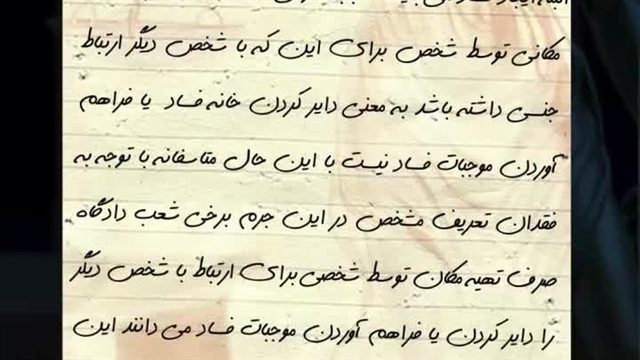 مکانی توسط شخص برای این که با شخص دیگر ارتباط
جنسی داشته باشد به معنی دایر کردن خانه فساد یا فراهم
آوردن موجبات فساد نیست با این حال متاسفانه با توجه به
فقدان تعریف مشخص در این جرم برخی شعب دادگاه
صرف تهیه مکان توسط شخصی برای ارتباط با شخص دیگر
را دایر کردن یا فراهم آوردن موجبات فساد می دانند این